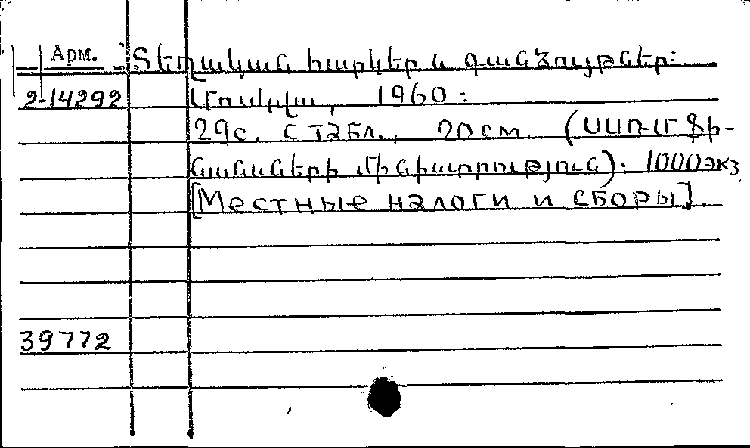 Арм. Տեղական հարկեր և գանձույթներ:
2-14292 Մոսկվա, 1960:
29с. с табл., 20см. (ՍՍՌՄ Ֆի-
նանսների մինիստրություն). 1000экз
[Местные налоги и сборы].
39772